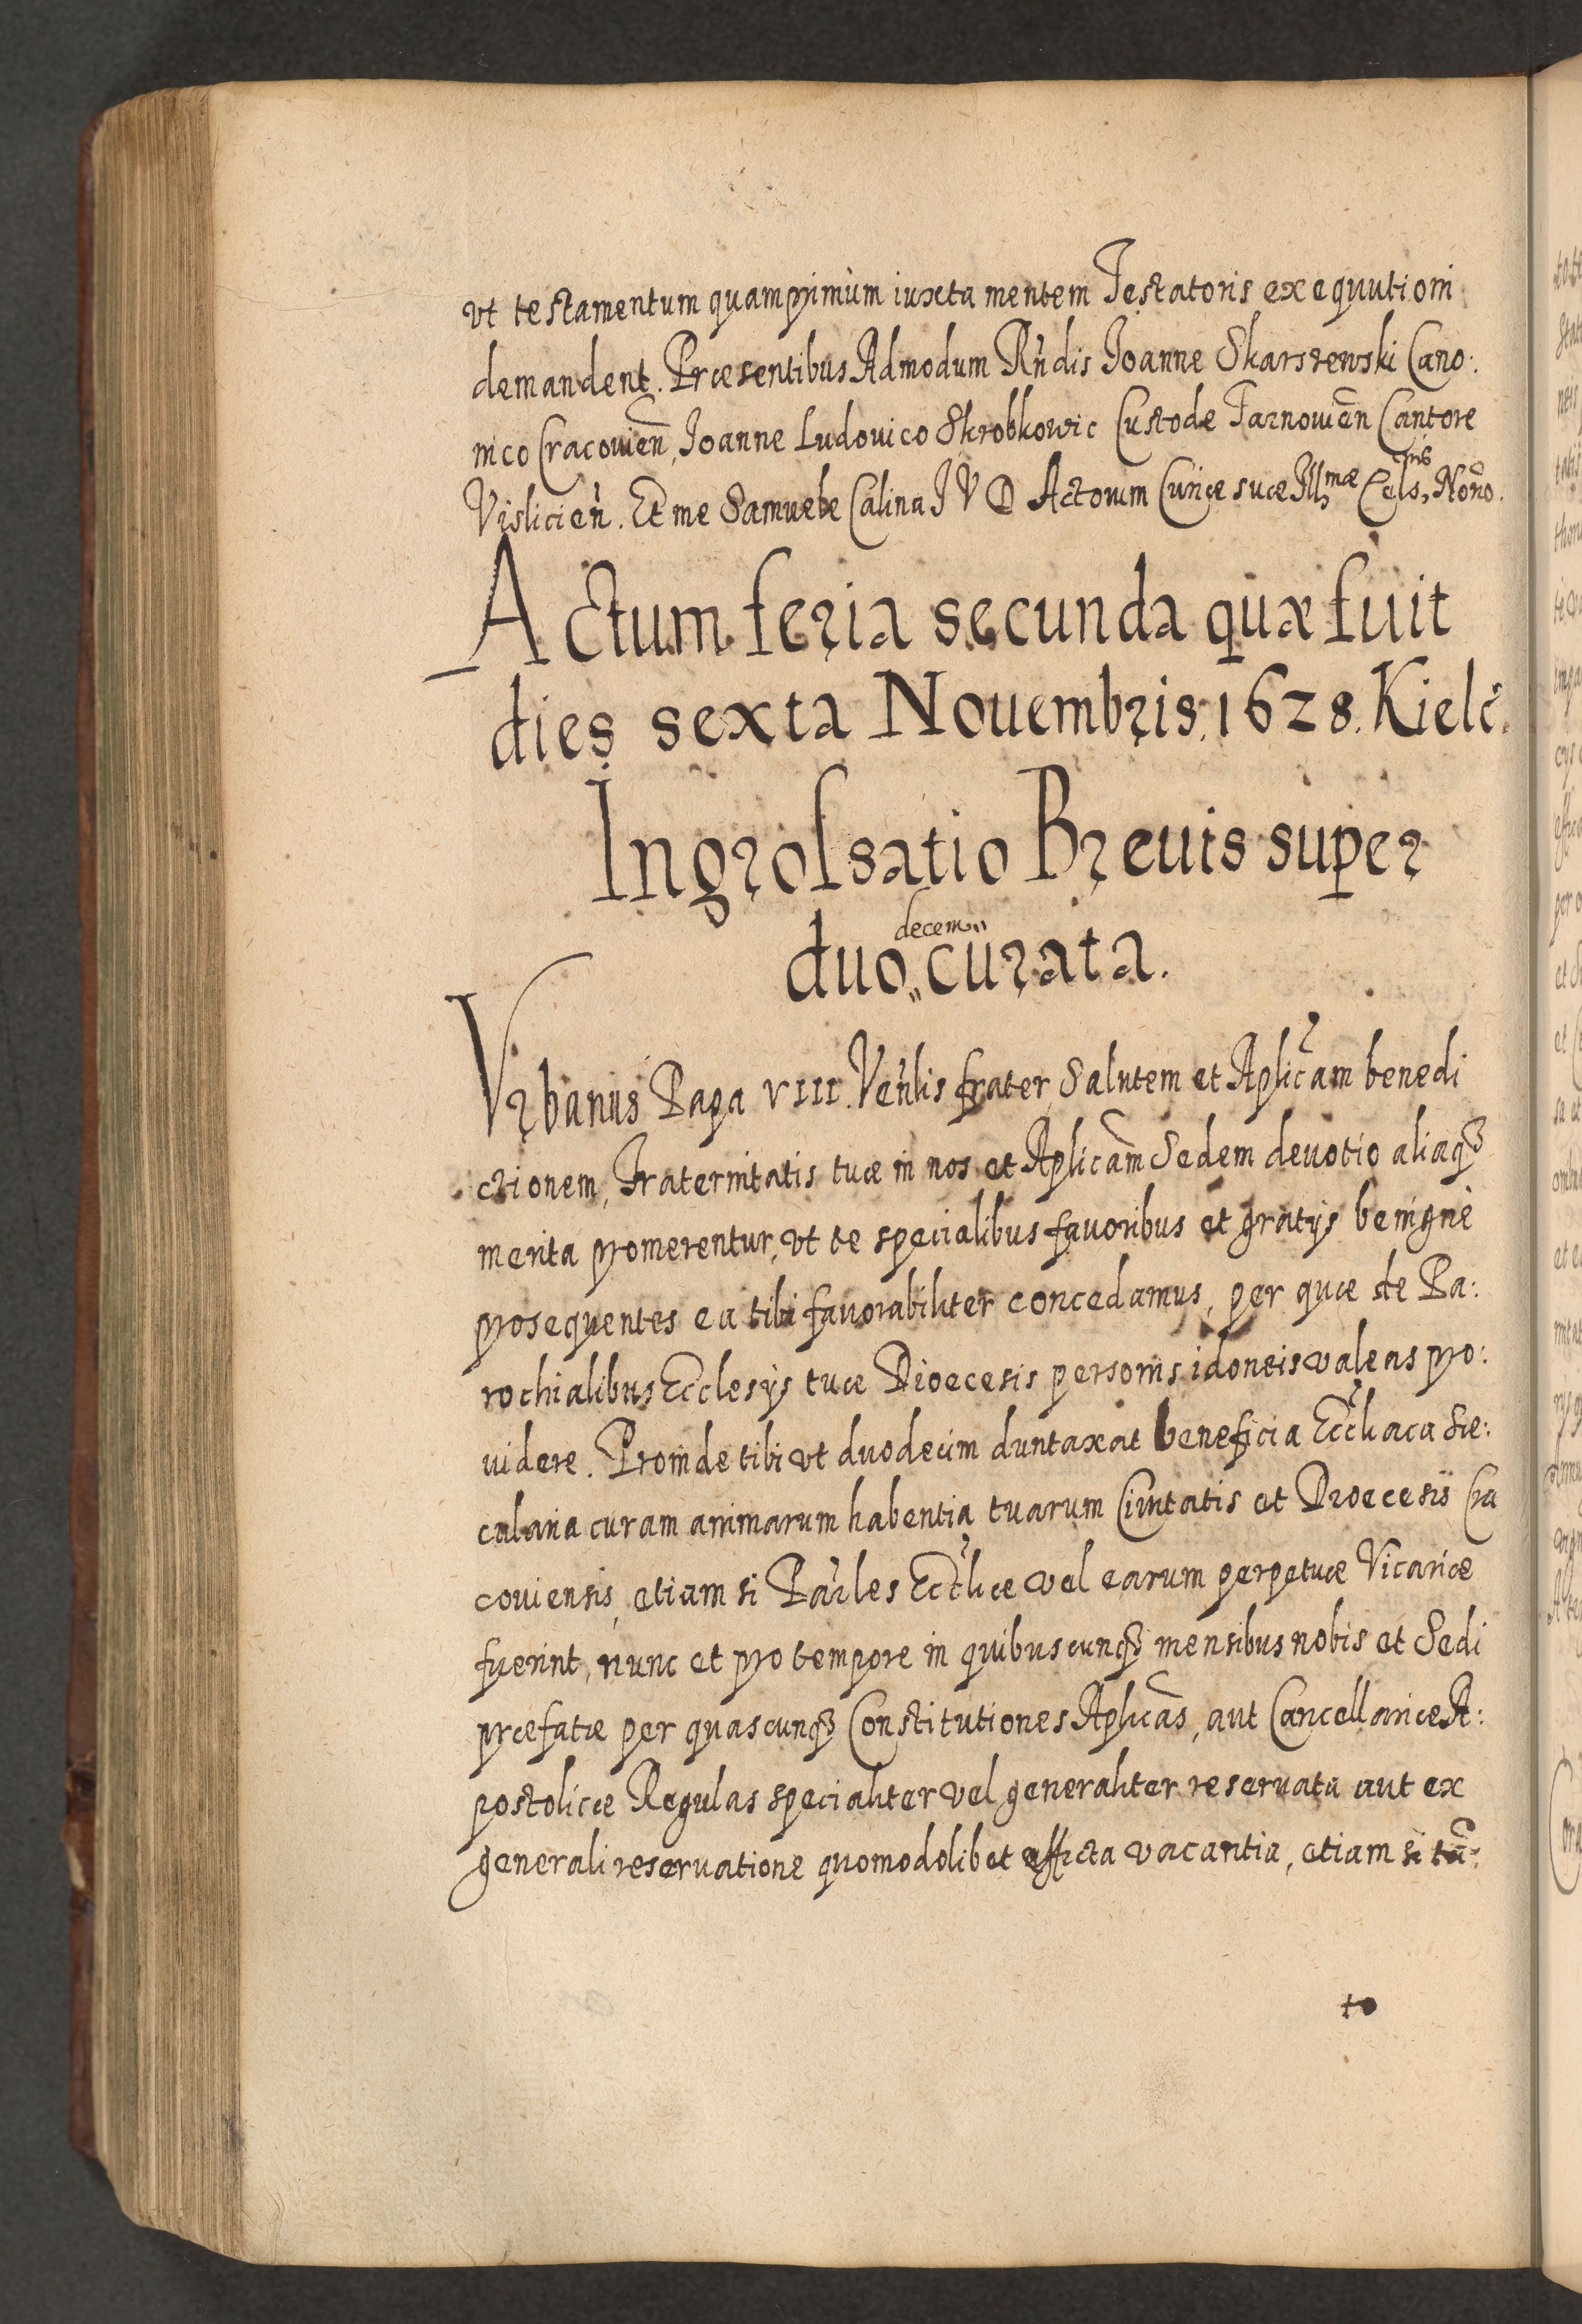 vt testamentum quamprimùm iuxta mentem Testatoris exequutioni
demandent. Præsentibus Admodum Rñdis Joanne Skarszewski Cano:
nico Cracovień, Joanne Ludouico Skrobkowic Custode Tarnowień Cantore
Vislicień. Et me Samuele Calina J V D Actorum Curiæ suæ Ill^mæ Cels^nis Notro.
Actum feria secunda quæ fuit
dies sexta Nouembris. 1628. Kielč.
Ingrossatio Breuis super
decem
duo,, curata.
Vrbanus Papa VIII. Veñlis frater, Salutem et Aplicam benedi
ctionem, Fraternitatis tuæ in nos et Aplicam Sedem deuotio aliaqȝ
merita promerentur, vt te specialibus fauoribus et gratijs benignè
prosequentes ea tibi fauorabiliter concedamus, per quæ de Pa:
rochialibus Ecclesijs tuæ Dioecesis personis idoneis valeas pro:
uidere. Proinde tibi vt duodecim duntaxat beneficia Eccl̃iaca Sæ:
cularia curam animarum habentia tuarum Ciuitatis et Dioecesis Cra
couiensis, etiam si Par̃les Eccl̃iæ vel earum perpetuæ Vicariæ
fuerint, nunc et pro tempore in quibuscunqȝ mensibus nobis et Sedi
præfatæ per quascunqȝ Constitutiones Aplicas, aut Cancellariæ A:
postolicæ Regulas specialiter vel generaliter reseruata aut ex
generali reseruatione quomodolibet affecta vacantia, etiam si tã:
to